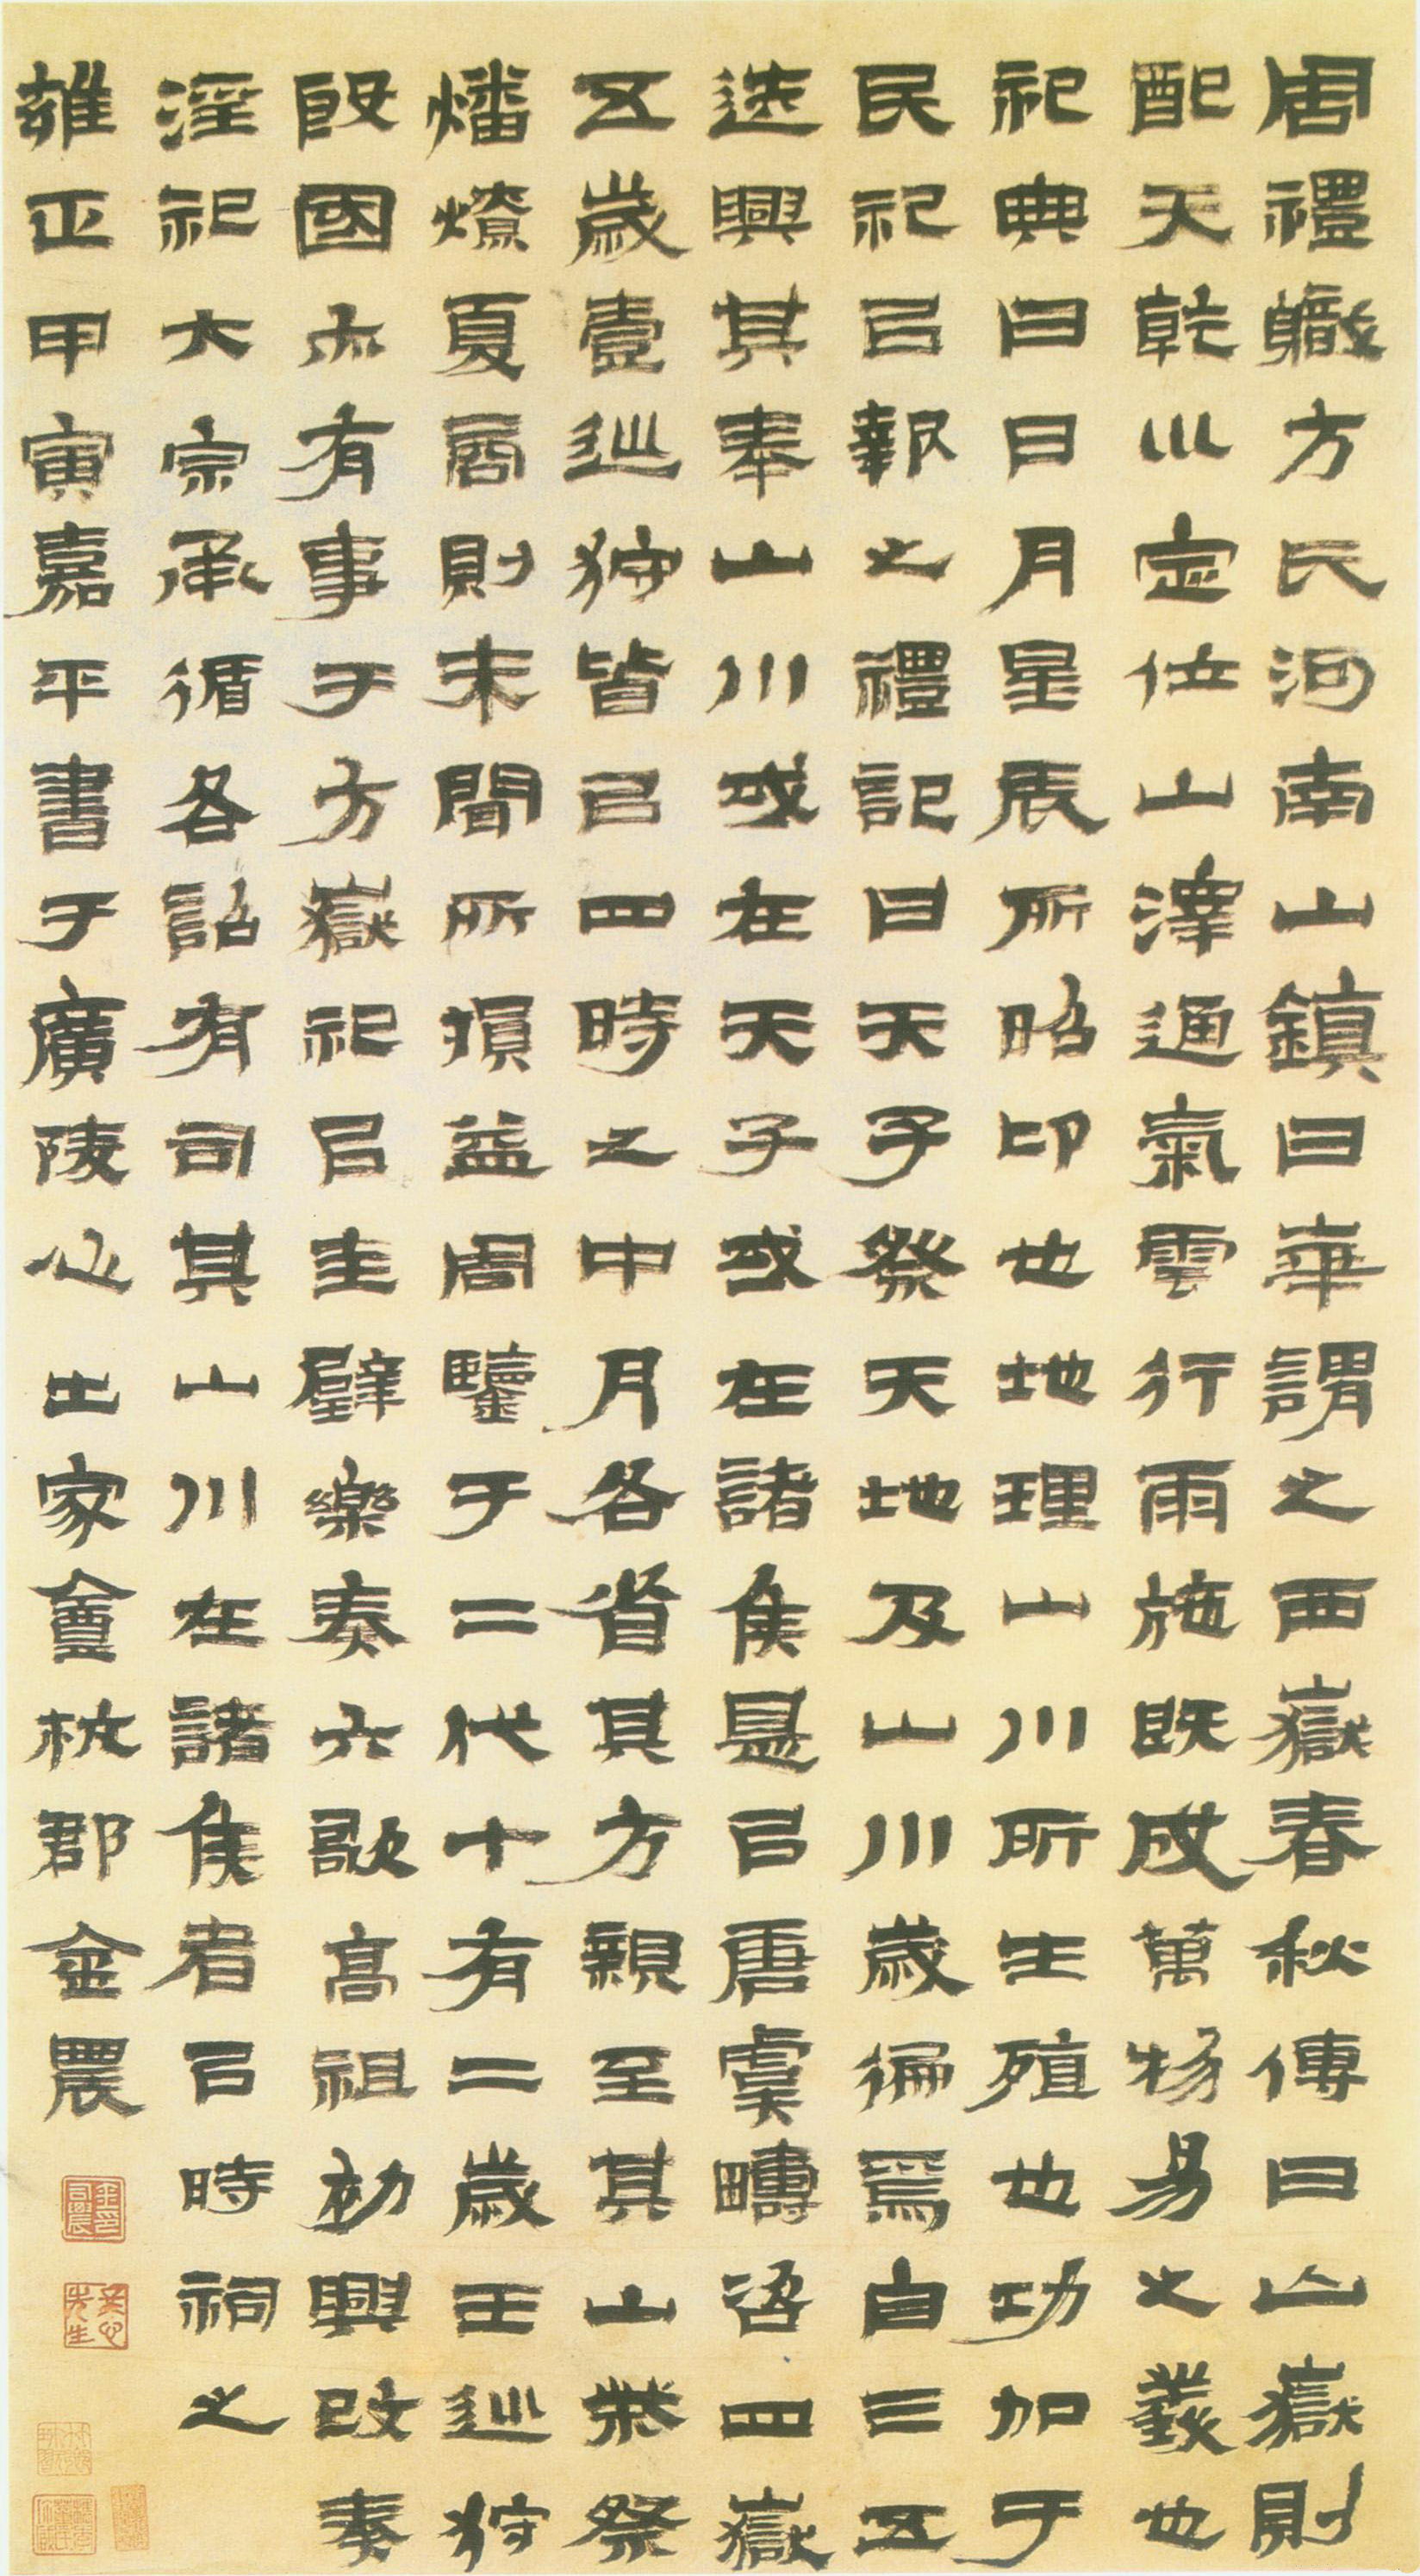 周禮軄方氏河南山鎮曰華謂之西嶽春秋傳曰山嶽則
配天乾巛定位山澤通氣雲行雨施既成萬物易之義也
祀典曰日月星辰所昭卬也地理山川所生殖也功加于
民祀㠯報之禮記曰天子祭天地及山川歲徧焉自三五
迭興其奉山川或在天子或在諸侯是㠯唐虞疇咨四嶽
五歲壹巡狩皆㠯四時之中月各省其方親至其山柴祭
燔燎夏商則未聞所損益周鑒于二代十有二歲王巡狩
殷國亦有事于方嶽祀㠯圭璧樂奏六歌高祖初興改秦
淫祀大宗承循各詔有司其山川在諸侯者㠯時祠之
雍正甲寅嘉平書于廣陵心出家盦杭郡金農
冬心先生